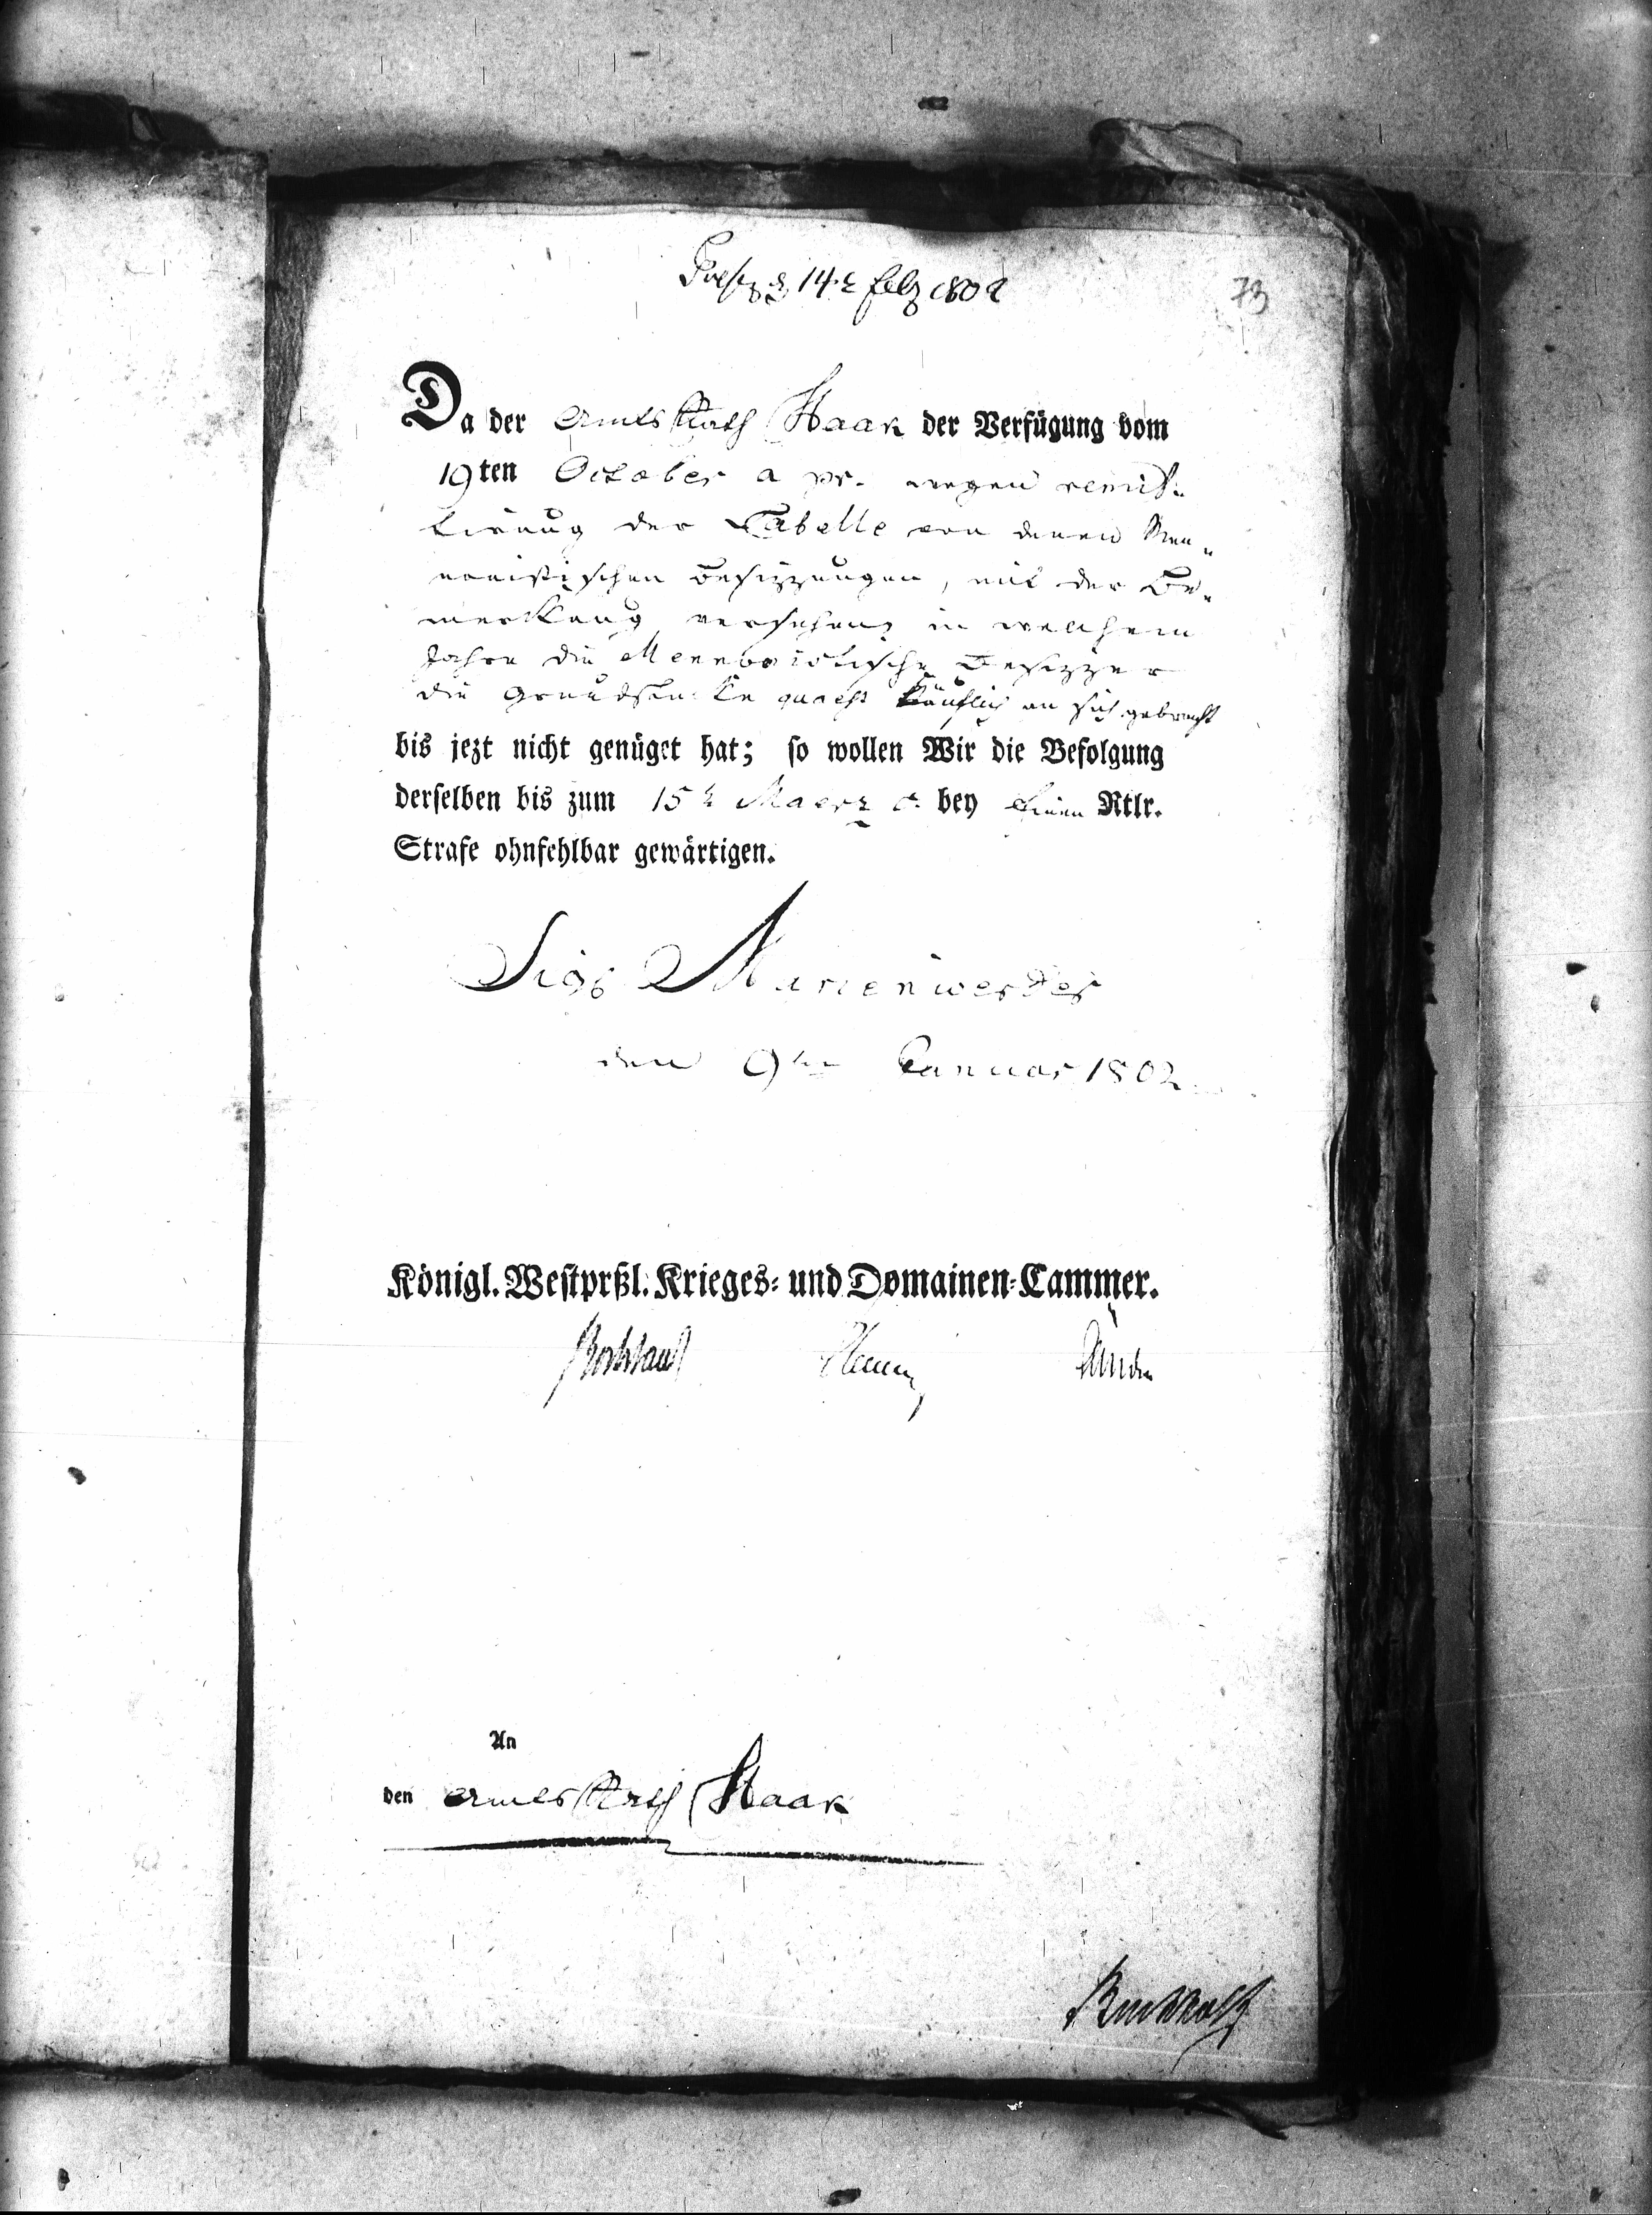 Præs. d 14t Feb 1802
73
Da der Amts Rath Haak der Verfügung vom
19ten October a pr. wegen remit-
tirung der Tabelle von denen Men-
nonistischen Besizzungen, mit der Be-
merkung versehen, in welchem
Jahre die Mennonistische Besizzer
die Grundstücke quaest käuflich an sich gebracht
bis jezt nicht genüget hat; so wollen Wir die Befolgung
derselben bis zum 15t Maerz c. bey Einen Rtlr.
Strafe ohnfehlbar gewärtigen.
Sig. Marienwerder
den 9ten Januar 1802
Königl. Westprßl. Krieges- und Domainen-Cammer.
An
den Amts Rath Haak